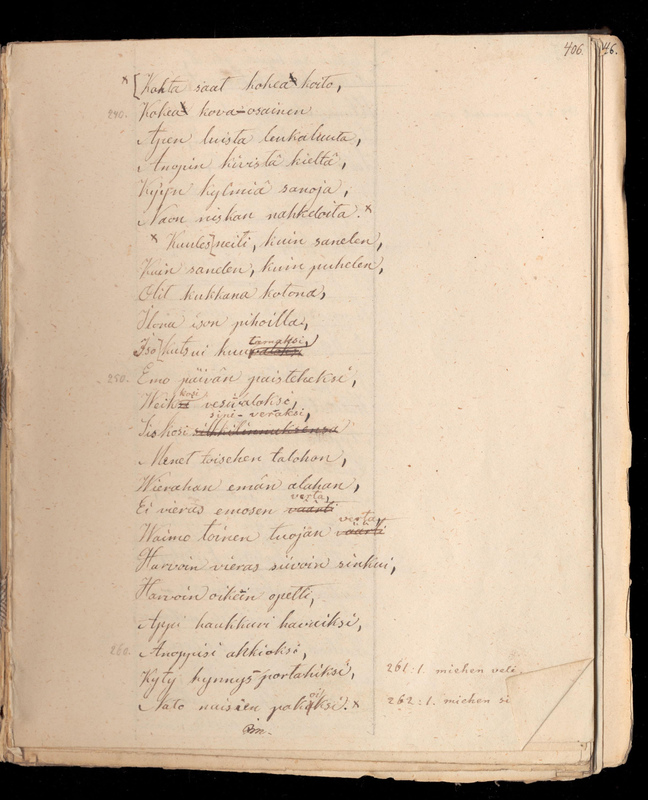 406. 46.
× [Kohta saat kohea koito,
240. Kohea kova-osainen
Apen luista leukaluuta,
Anopin kivistä kieltä,
Kyyn kylmiä sanoja,
Naon niskan nahkeloita.×
× Kuules] neiti, kuin sanelen,
Kuin sanelen, kuin puhelen,
Olit kukkana kotona,
Ilona ison pihoilla,
Iso] kutsui kuu
tamaksi,
250. Emo päivän paisteheksi,
Weik
kosi
vesivaloksi,
sini-veraksi,
Siskosi silkkilinnuksensa
Menet toisehen talohon,
Wierahan emän alahan,
verta,
Ei vieras emosen väärti
verta,
Waimo toinen tuojan väärti
Harvoin vieras siivoin sinkui,
Harvoin oikein opetti,
Appi haukkuvi havuiksi,
260. Anoppisi ahkioksi,
Kyty kynnys-portahiksi,
261: l. miehen veli
Nato naisien pahoiksi.×
262: l. miehen si